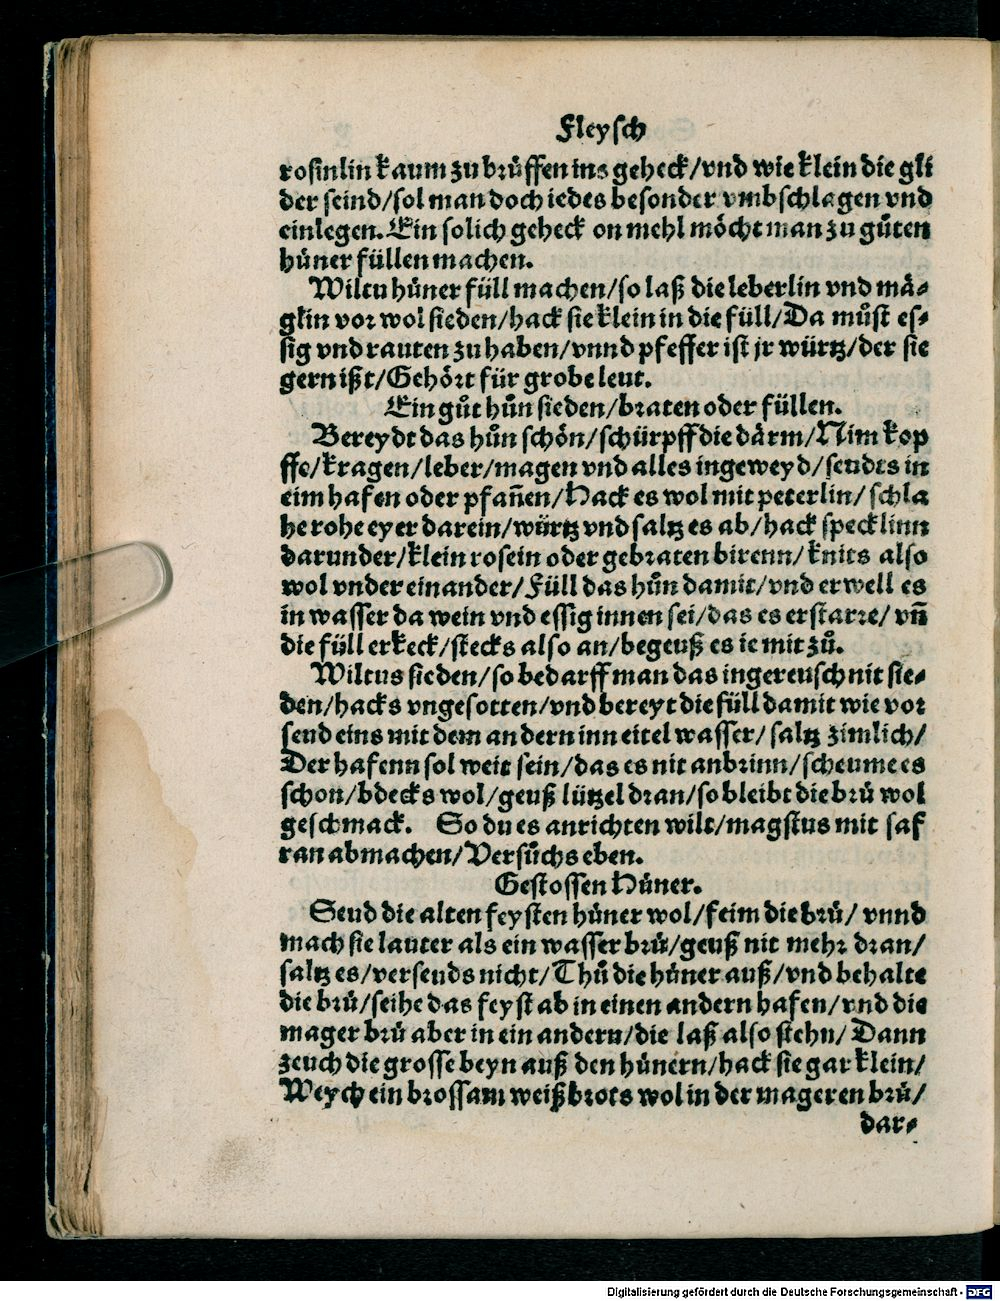 Fleysch
rosinlin kaum zu brůffen ins geheck/vnd wie klein die gli
der seind/sol man doch iedes besonder vmbschlagen vnd
einlegen. Ein solich geheck on mehl möcht man zu gůten
hůner füllen machen.
Wiltu hůner füll machen/so laß die leberlin vnd mä⸗
glin vor wol sieden/hack sie klein in die füll/Da můst es⸗
sig vnd rauten zu haben/vnnd pfeffer ist jr würtz/der sie
gern ißt/Gehört für grobe leut.
Ein gůt hůn sieden/braten oder füllen.
Bereydt das hůn schön/schürpff die därm/Nim kop
ffe/kragen/leber/magen vnd alles ingeweyd/seudts in
eim hafen oder pfañen/Hack es wol mit peterlin/schla
he rohe eyer darein/würtz vnd saltz es ab/hack specklinn
darunder/klein rosein oder gebraten birenn/knits also
wol vnder einander/Füll das hůn damit/vnd erwell es
in wasser da wein vnd essig innen sei/das es erstarre/vñ
die füll erkeck/stecks also an/begeuß es ie mit zů.
Wiltus sieden/so bedarff man das ingereusch nit sie⸗
den/hacks vngesotten/vnd bereyt die füll damit wie vor
seud eins mit dem andern inn eitel wasser/saltz zimlich/
Der hafenn sol weit sein/das es nit anbrinn/scheume es
schon/bdecks wol/geuß lützel dran/so bleibt die brů wol
geschmack. So du es anrichten wilt/magstus mit saf
ran abmachen/Versůchs eben.
Gestossen Hůner.
Seud die alten feysten hůner wol/feim die brů/vnnd
mach sie lauter als ein wasser brů/geuß nit mehr dran/
saltz es/verseuds nicht/Thů die hůner auß/vnd behalte
die brů/seihe das feyst ab in einen andern hafen/vnd die
mager brů aber in ein andern/die laß also stehn/Dann
zeuch die grosse beyn auß den hůnern/hack sie gar klein/
Weych ein brossam weißbrots wol in der mageren brů/
dar⸗
Digitalisierung gefördert durch die Deutsche Forschungsgemeinschaft - DFG